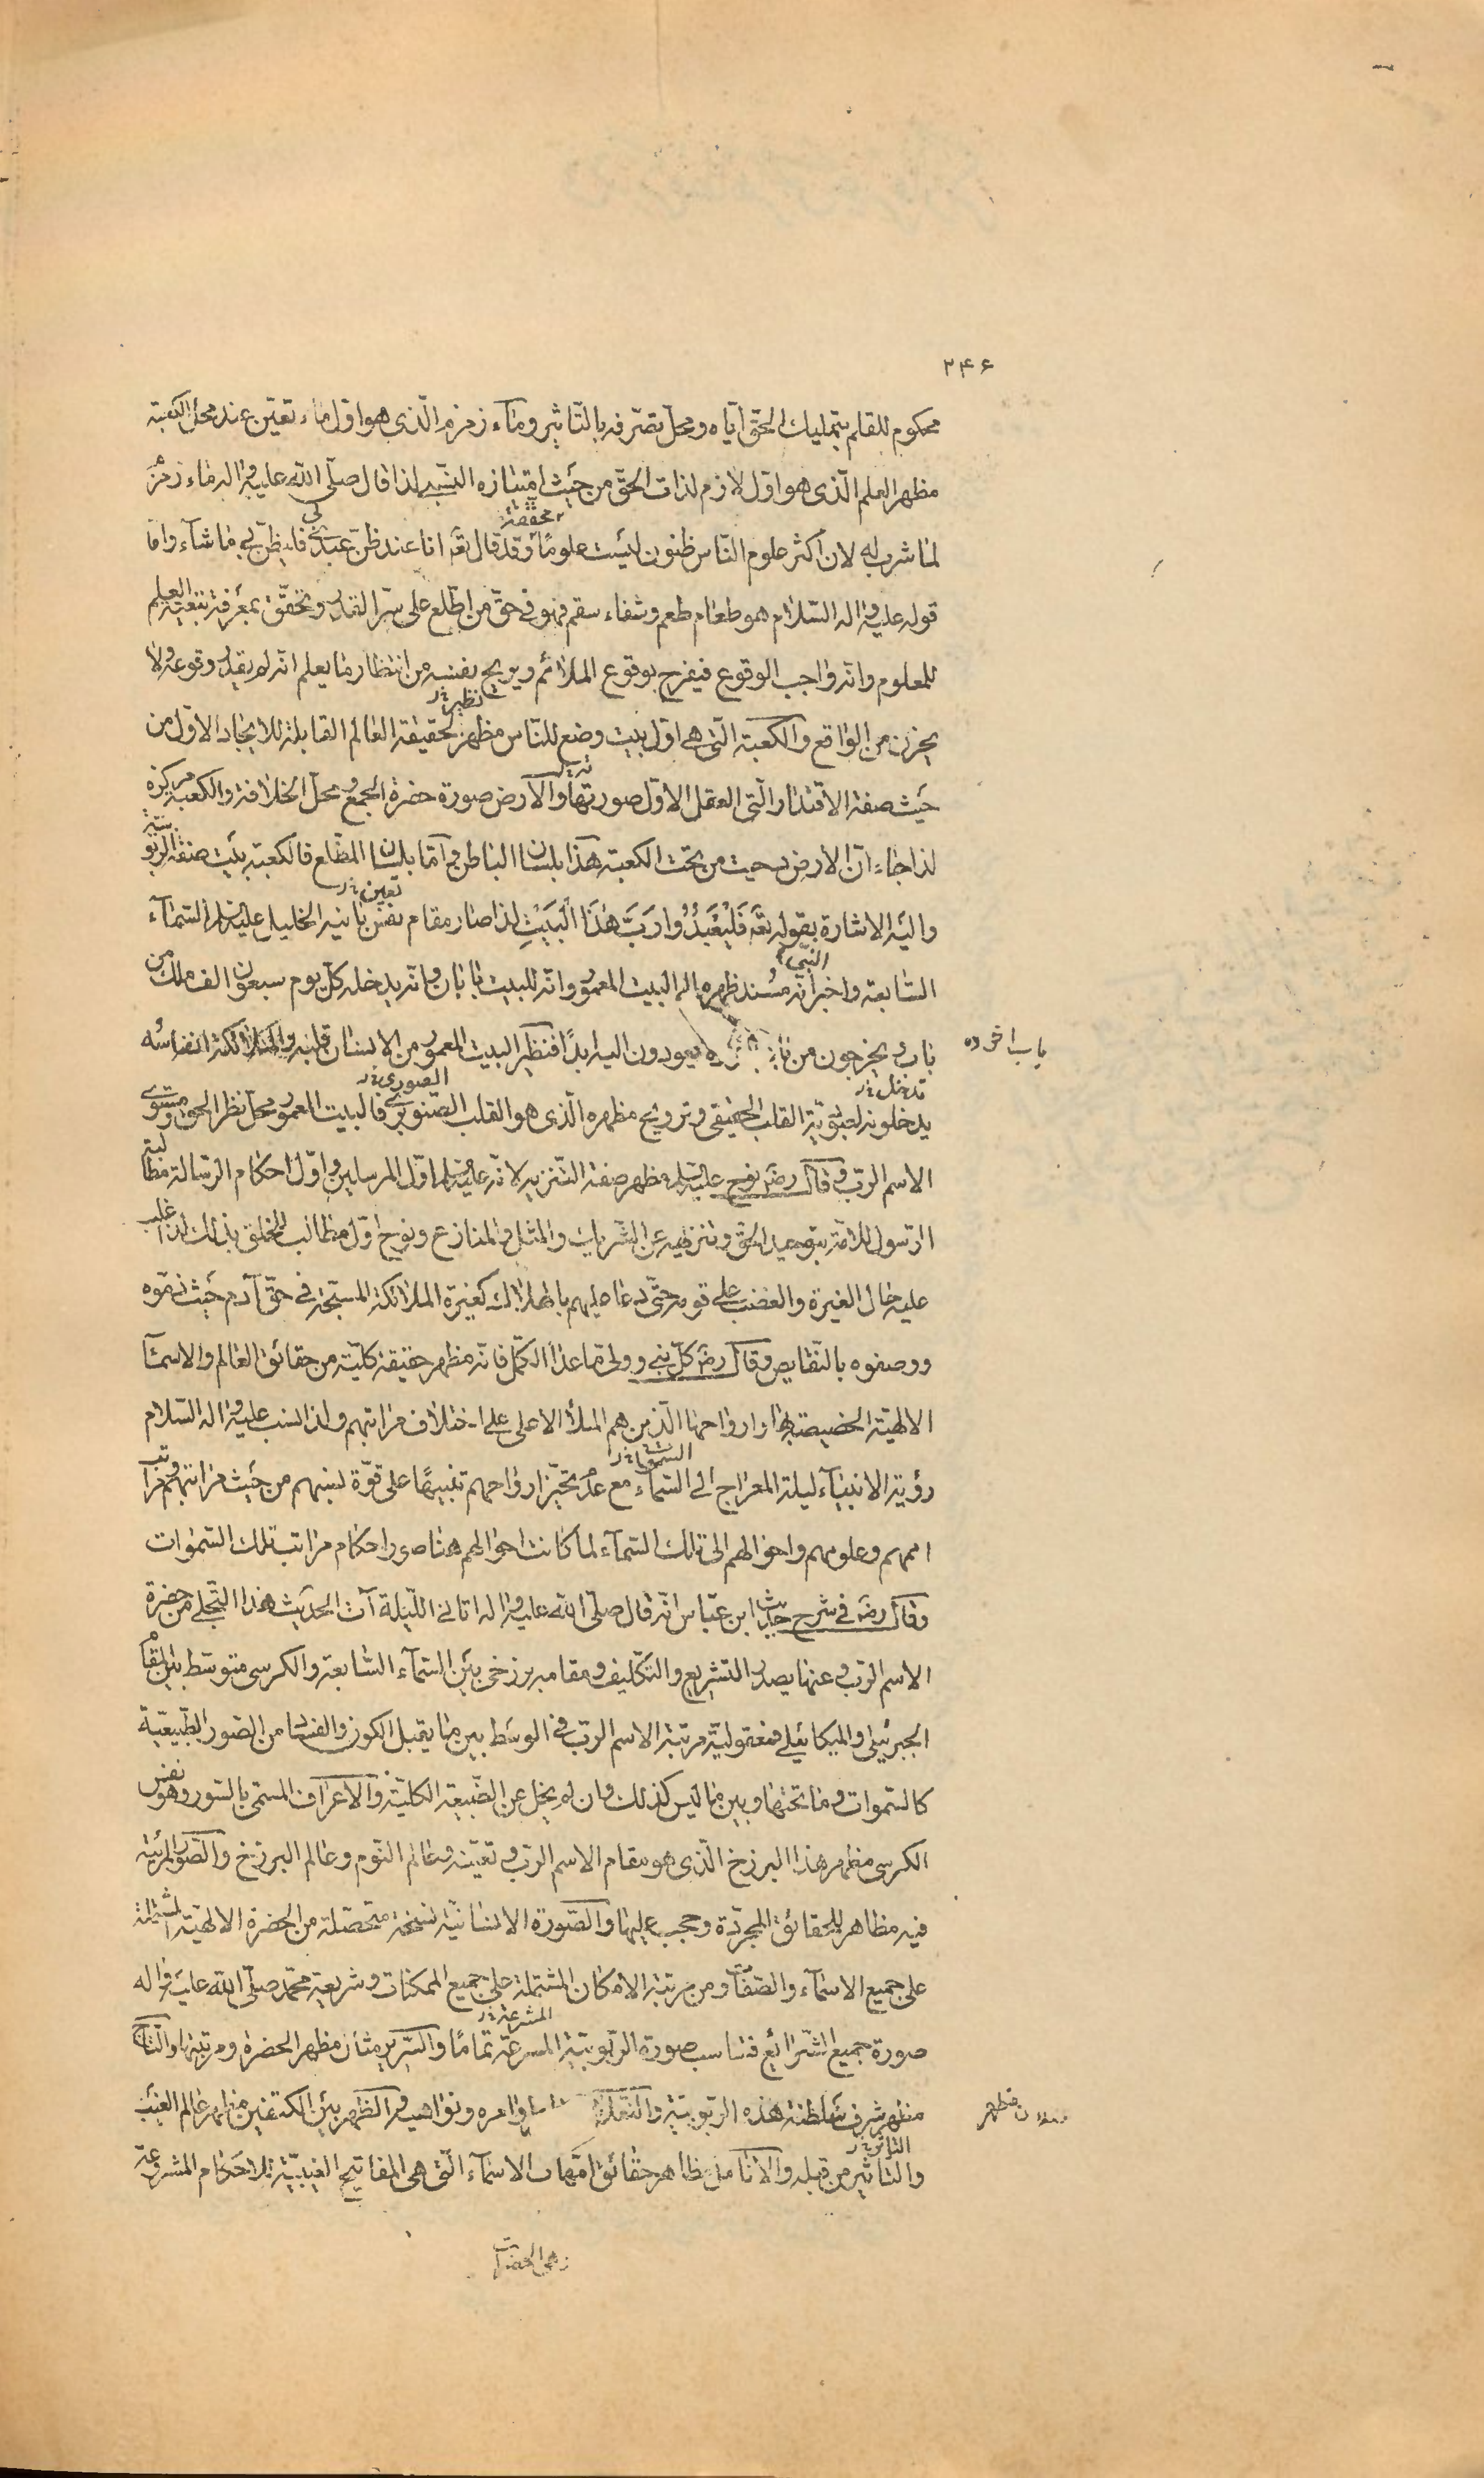 ۲۴۶
محكوم للقلم بتمليك الحقّ ايّاه ومحلّ تصرّفه بالتّاثير وماء زمزم الّذى هو اوّل ماء تعيّن عند محلّ الكعبة
مظهر العلم الّذى هو اوّل لازم لذات الحقّ من حيث امتيازه النسبى لذا قال صلّى اللّه عليه واله ماء زمزم
محققة
لما شرب له لان اكثر علوم النّاس ظنون ليست علومًا وقد قال تعه انا عند ظنّ عبدى بى فليظنّ بى ما شآء وامّا
قوله عليه واله السّلام هو طعام طعم وشفاء سقم فهو فى حقّ من اطّلع على سرّ القدر وتحقّق بمعرفة تبعيّة العلم
للمعلوم وانّه واجب الوقوع فيفرح بوقوع الملائم ويريح نفسه من انتظار ما يعلم انّه لم يقدر وقوعه ولا
نظير
يحزن من الواقع والكعبة الّتى هى اوّل بيت وضع للنّاس مظهر لحقيقة العالم القابلة للايجاد الاوّل من
حيث صفة الاقتدار الّتى العقل الاوّل صورتها والارض صورة حضرة الجمع ومحلّ الخلافة والكعبة مركزه
لذا جاء انّ الارض دحيت من تحت الكعبة هذا بلسان الباطن وامّا بلسان المطّلع فالكعبة بيت صفة الربوبيّة
تعين
واليه الاشارة بقوله تعه فَلْيَعْبُدُوا رَبَّ هٰذَا الْبَيْتِ لذا صار مقام نفس بانيه الخليل عليه السلم السّمآء
النبى
السّابعة واخبر انّه مسند ظهره الى البيت المعمور وانّه للبيت بابان وانّه يدخله كلّ يوم سبعون الف ملك من
باب اخر ولا
باب ويخرجون من باب يعودون اليه ابدًا فنظير البيت المعمور من الانسان قلبه والملائكة انفاسه
تدخل الصورى
يدخلونه لتقوية القلب الحقيقى وترويح مظهره الّذى هو القلب الصّنوبرى فالبيت المعمور محلّ نظر الحق ومستوى
الاسم الرّبّ وقال رضه نوح عليه السلم مظهر صفة التّنزيه لانّه عليه السلم اوّل المرسلين واوّل احكام الرّسالة مطالبة
الرّسول للامّة بتوحيد الحقّ وتنزيهه عن الشّريك والمثل والمنازع ونوح اوّل مطالب للخلق بذلك لذا غلب
عليه حال الغيرة والغضب على قومه حتّى دعا عليهم باهلاك كغيرة الملائكة المسبّحة فى حقّ آدم حيث ذمّوه
ووصفوه بالنّقايص وقال رضه كلّ نبى وولى ما عدا الكمّل فانّه مظهر حقيقة كليّة من حقائق العالم والاسماء
الالهيّة الخصيصة بها وارواحها الّذين هم الملأ الاعلى على اختلاف مراتبهم ولذا نسب عليه واله السّلام
السموات
رؤية الانبياء ليلة المعراج الى السّماء مع عدم تحيّز ارواحهم تنبيهًا على قوّة نسبهم من حيث مراتبهم ومراتب
اممهم وعلومهم واحوالهم الى تلك السّمآء لما كانت احوالهم هنا صور احكام مراتب تلك السّموات
وقال رضه فى شرح حديث ابن عبّاس انّه قال صلّى اللّه عليه واله اتانى اللّيلة آت الحديث هذا التّجلى من حضرة
الاسم الرّبّ وعنها يصدر التشريع والتّكليف ومقامه برزخى بين السّمآء السّابعة والكرسى متوسّط بين المقام
الجبرئيلى والميكائيلى فمعقوليّة مرتبة الاسم الربّ فى الوسط بين ما يقبل الكون والفساد من الصّور الطّبيعيّة
كالسّموات وما تحتها وبين ما ليس كذلك وان لم يخل عن الطّبيعة الكليّة والاعراف المسمّى بالسّور وهو نفس
الكرسى مظهر هذا البرزخ الّذى هو مقام الاسم الربّ وتعيّنه وعالم النّوم وعالم البرزخ والصّور المرئيّة
فيه مظاهر للحقائق المجرّدة وحجب عليها والصّورة الانسانيّة نسخة متحصّلة من الحضرة الالهيّة المشتملة
على جميع الاسمآء والصّفات ومن مرتبة الامكان المشتملة على جميع الممكنات وشريعة محمّد صلّى اللّه عليه واله
المشرعة
صورة جميع الشّرائع فناسب صورة الرّبوبيّة المسرعة تمامًا والسّرير مثال مظهر الحضرة ومرتبتها والتّاج
مظهر شرف سلطنة هذه الرّبوبيّة اوامره ونواهيه والظّهر بين الكتفين مظهر عالم الغيب
مظهر
والتّاثير من قبله والانامل مظاهر حقائق امّهات الاسمآء الّتى هى المفاتيح الغيبيّة للاحكام المشروعة